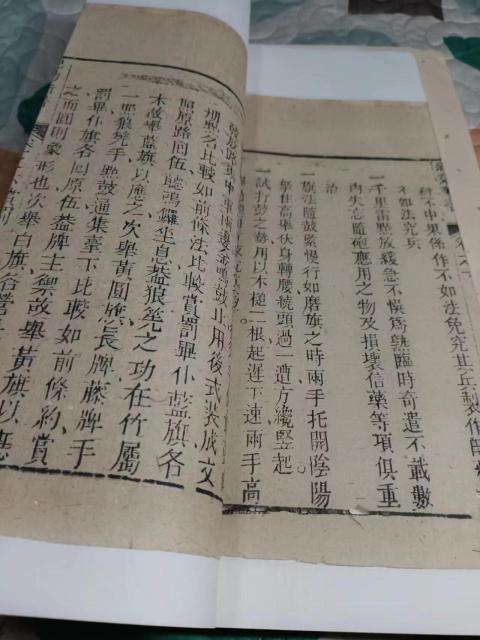 科不中果係作不如法免究其兵製作師
不如法究兵
一千里雷點放緩急不慔爲熟臨時奇遣不載數
内失忘隨砲應用之物及損壞信藥等項俱重
治
一旗法隨鼓緊慢行如磨旗之時兩手托開陰陽
舉住高舉伏身轉腰撓頭過一遭方纔竪起
一試打鼓之勢用以木槌二根起遲下速兩手高
金鳴鼓止用後式裝成文
期點名比較如前條法比較賞罰畢仆藍旗各
照原路回伍聽鳴鑼坐息蓋狼筅之功在竹屬
木故舉藍旗以應之次舉黄圓旗長牌藤牌手
二照狼筅手點鼓通集臺下比較如前條約賞
罰畢仆旗各回原伍蓋牌主禦故舉黄旗以應
之而圓則象形也次舉白旗各營